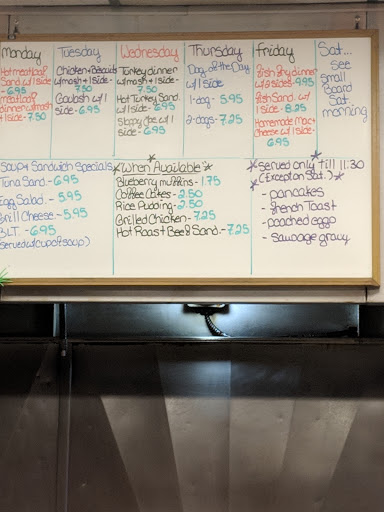 Monday
Hot meatloaf
Sand w/1 side
- 6.95
meatloaf
dinner w/mash
+ 1 side - 7.50
Tuesday
Chicken + Biscuits
w/mash + 1 side -
7.50
Goulash w/1
side - 6.95
Wednesday
Turkey dinner
w/mash + 1 side -
7.50
Hot Turkey Sand.
w/1 side - 6.95
Sloppy Joe w/1
side - 6.95
Thursday
Dog of the Day
w/1 side
1-dog - 5.95
2-dogs - 7.25
Friday
Fish Fry dinner
w/2 sides - 9.95
Fish Sand. w/
1 side - 8.25
Homemade Mac +
cheese w/1 side -
6.95
Sat...
see
small
Board
Sat.
morning
Soup + Sandwich Specials
Tuna Sand. - 6.95
Egg Salad. - 5.95
Grill Cheese - 5.95
B.L.T. - 6.95
(served w/cup of soup)
*When Available*
Blueberry muffins - 1.75
Coffee Cakes - 2.50
Rice Pudding - 2.50
Grilled Chicken - 7.25
Hot Roast Beef Sand. - 7.25
*served only till 11:30
*(Except on Sat.)*
- pancakes
- french Toast
- poached eggs
- sausage gravy